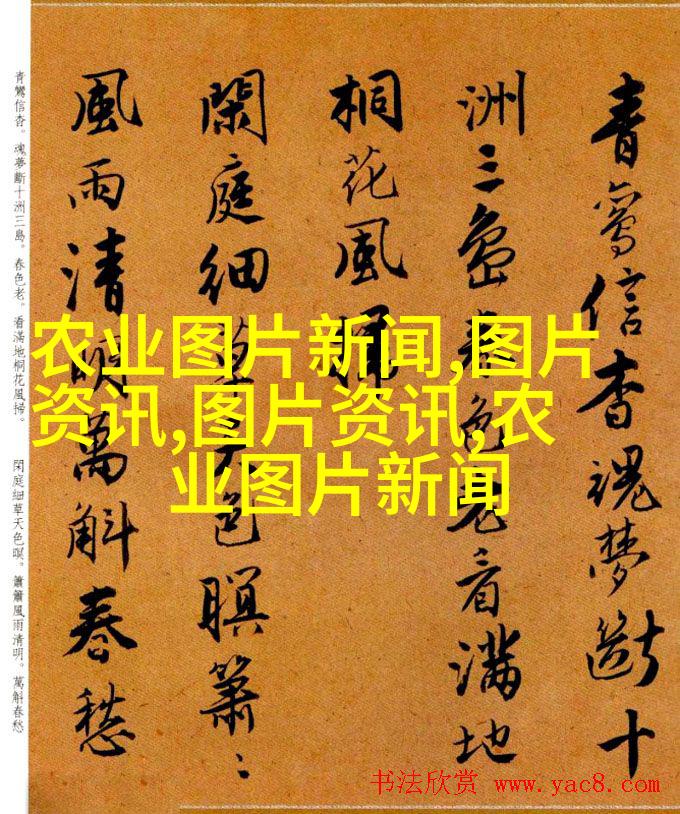 青鸞信杳魂夢斷十
洲三島春色老看滿地
桐花風掃
閑庭細草天色暝簫〻
風雨清明萬斛春愁
青鸞信杳。魂夢斷十洲三島。春色老。看滿地桐花風掃。 閑庭細草天色暝。簫簫風雨清明。萬斛春愁
农业图片新闻,图片
资讯,图片资讯,农
业图片新闻
书法欣赏 www.yac8.com